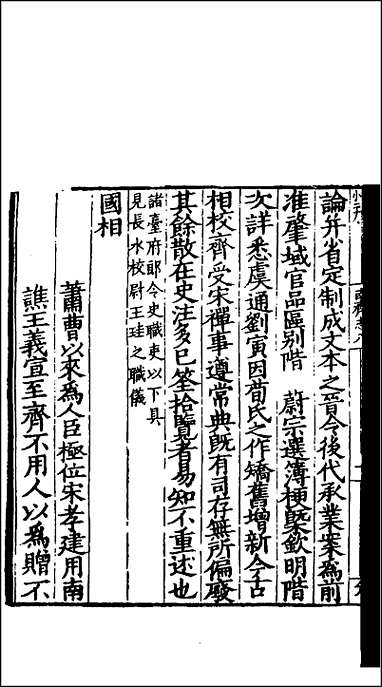 論并省定制成文本之晉令後代承業案爲前
准肇域官品區别階蔚宗選簿梗槩欽明階
次詳悉虞通劉寅因荀氏之作矯舊增新今古
相校齊受宋禪事遵常典既有司存無所偏廢
其餘散在史注多已筌拾覽者易知不重述也
諸臺府郎令史職吏以下具
見長水校尉王珪之職儀
國相
蕭曹以來爲人臣極位宋孝建用南
譙王義宣至齊不用人以爲贈不